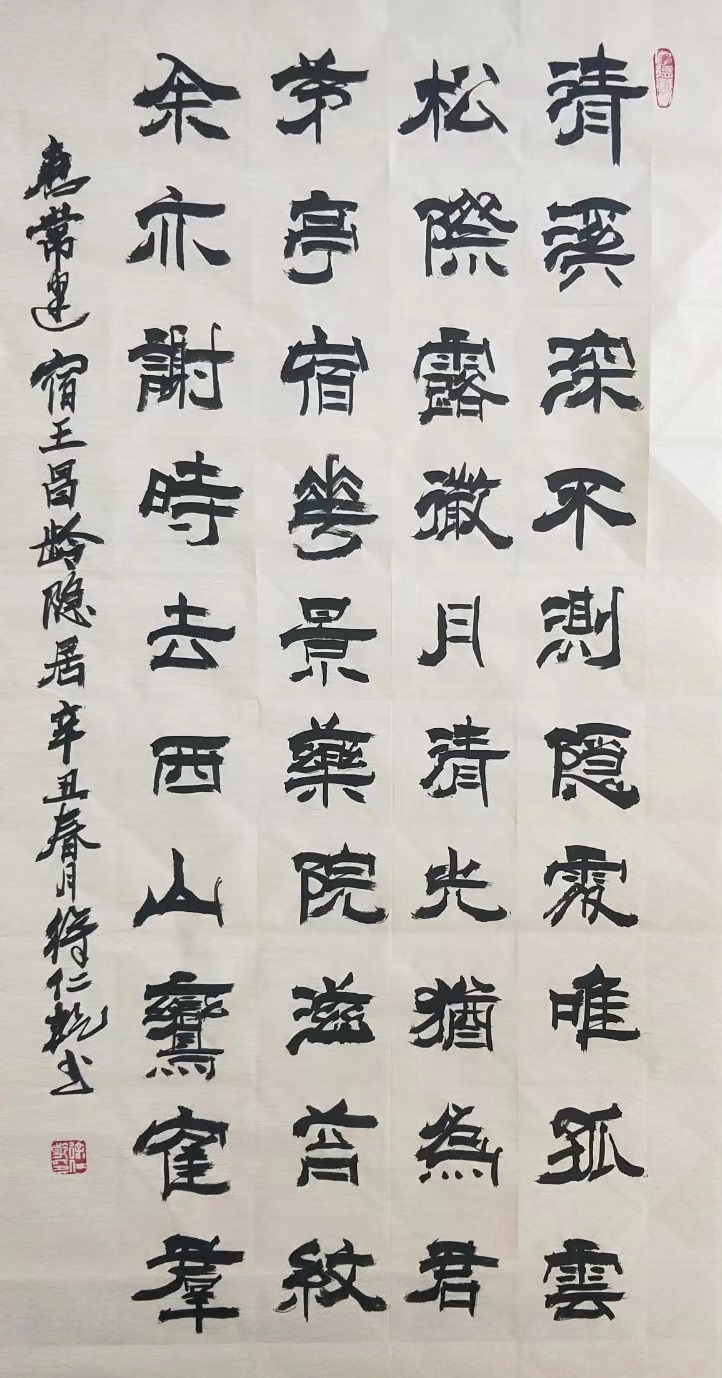 清溪深不測隐處唯孤雲
松際露微月清光猶為君
茅亭宿華景藥院滋苔紋
余亦謝時去西山鸞鶴羣
常建宿王昌龄隐居辛丑春月徐仁乾书